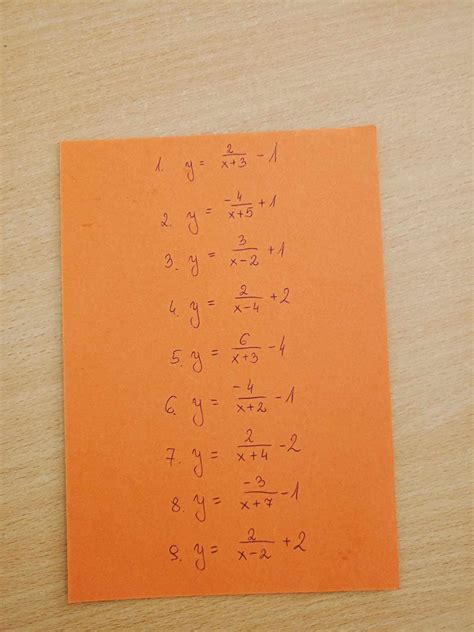 1. y = 2/(x+3) - 1
2. y = -4/(x+5) + 1
3. y = 3/(x-2) + 1
4. y = 2/(x-4) + 2
5. y = 6/(x+3) - 4
6. y = -4/(x+2) - 1
7. y = 2/(x+4) - 2
8. y = -3/(x+7) - 1
9. y = 2/(x-2) + 2